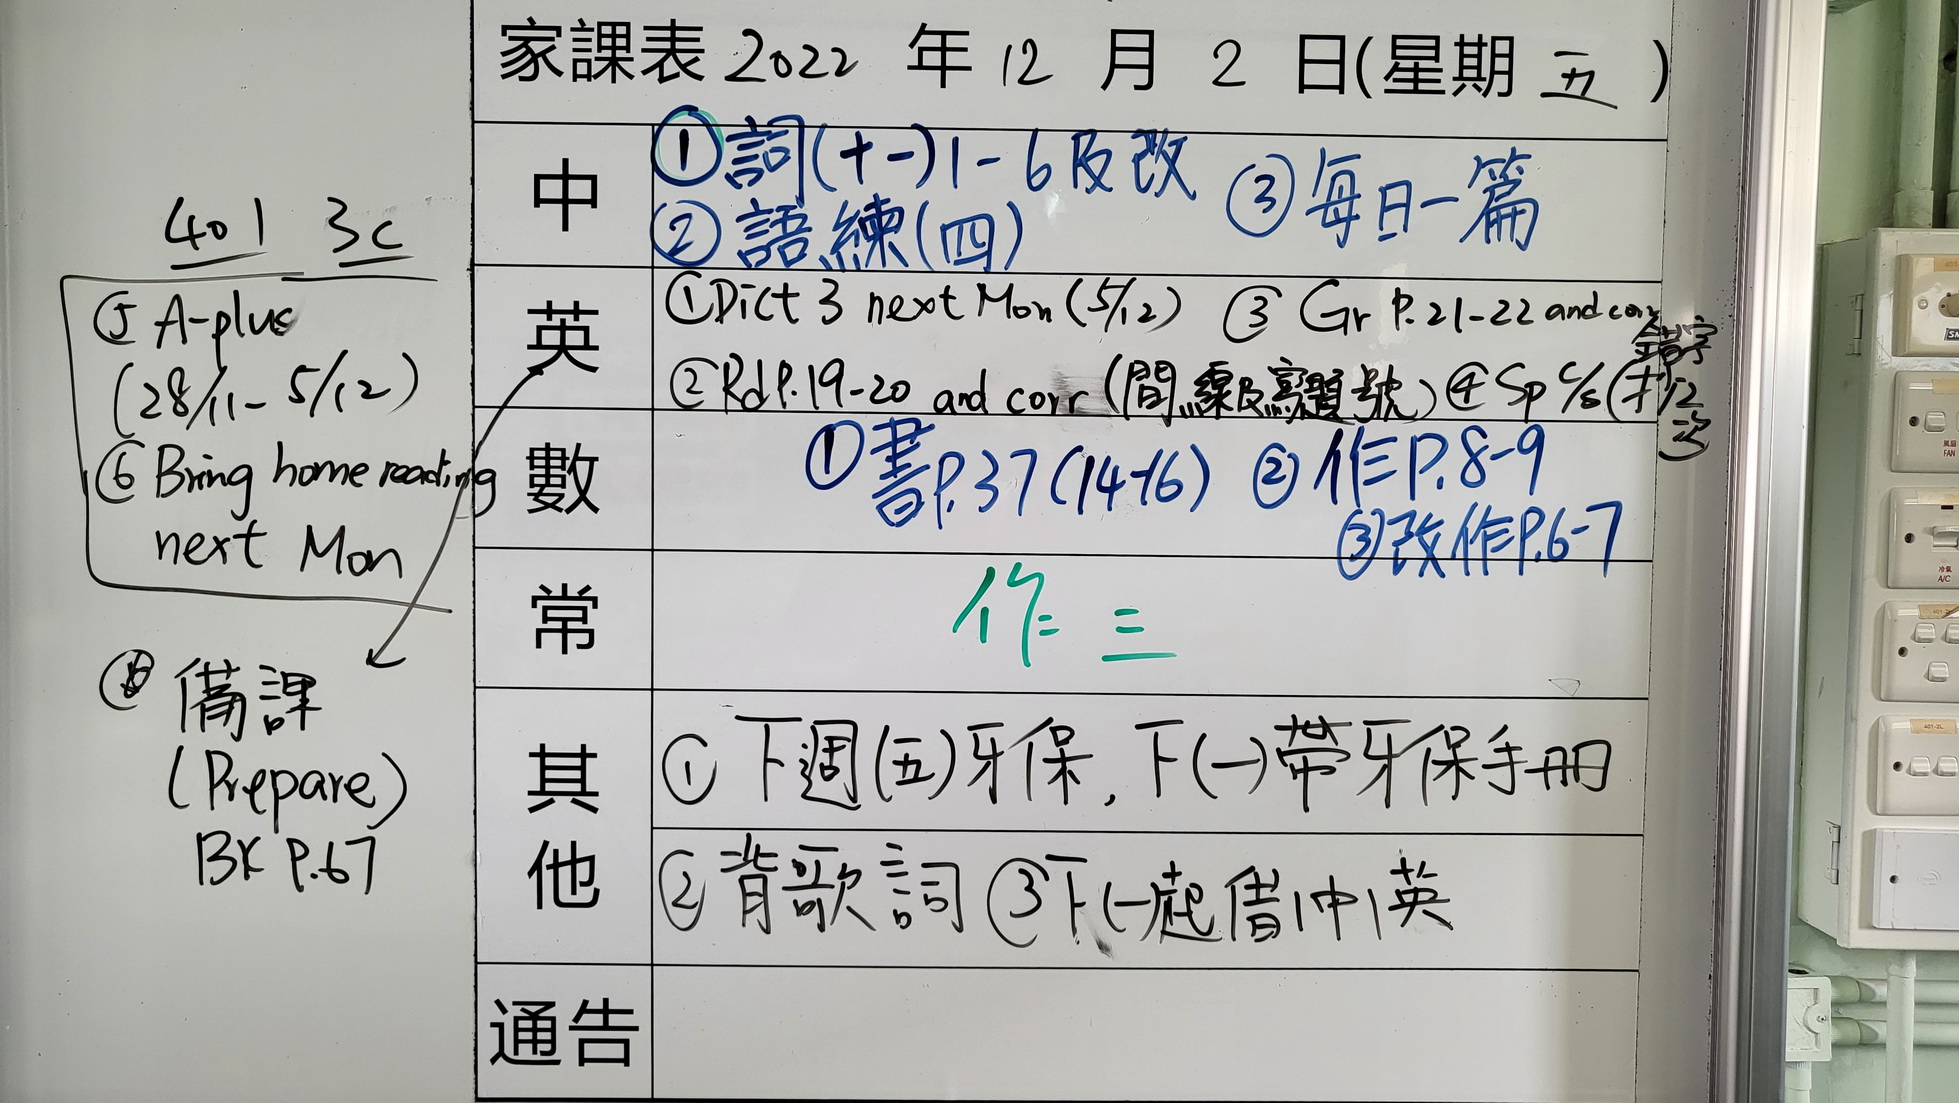 家課表 2022 年 12 月 2 日(星期 五 )
中
①詞(十一)1-6及改 ③每日一篇
②語練(四)
英
①Dict 3 next Mon (5/12) ③ Gr P.21-22 and corr
②Rd P.19-20 and corr (間線及寫題號) ④ Sp c/s (
錯字
12
次
數
①書P.37(14-16) ②作P.8-9
③改作P.6-7
常
作三
其他
①下週(五)牙保,下(一)帶牙保手冊
②背歌詞 ③下(一)起借1中1英
通告
401 3C
⑤ A-plus
(28/11- 5/12)
⑥ Bring home reading
next Mon
備課
(Prepare)
BK P.67
FAN
A/C